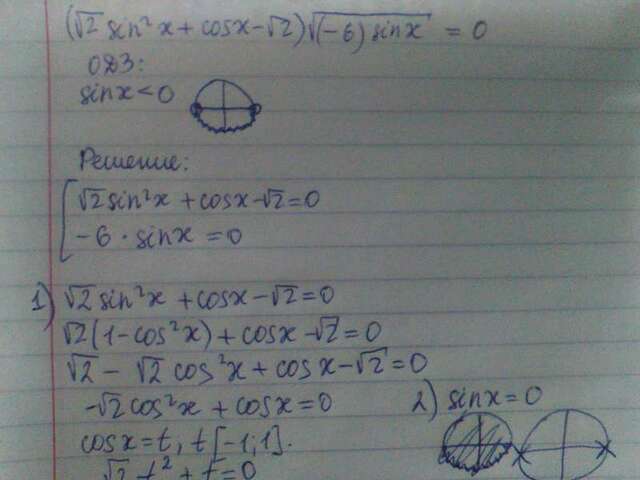 (√2 sin²x + cosx - √2)√(-6) sinx = 0
ОДЗ:
sinx < 0
Решение:
[ √2 sin²x + cosx - √2 = 0
-6 · sinx = 0
1) √2 sin²x + cosx - √2 = 0
√2(1 - cos²x) + cosx - √2 = 0
√2 - √2 cos²x + cosx - √2 = 0
-√2 cos²x + cosx = 0
cosx = t, t [-1; 1].
√2 t² + t = 0
2) sinx = 0